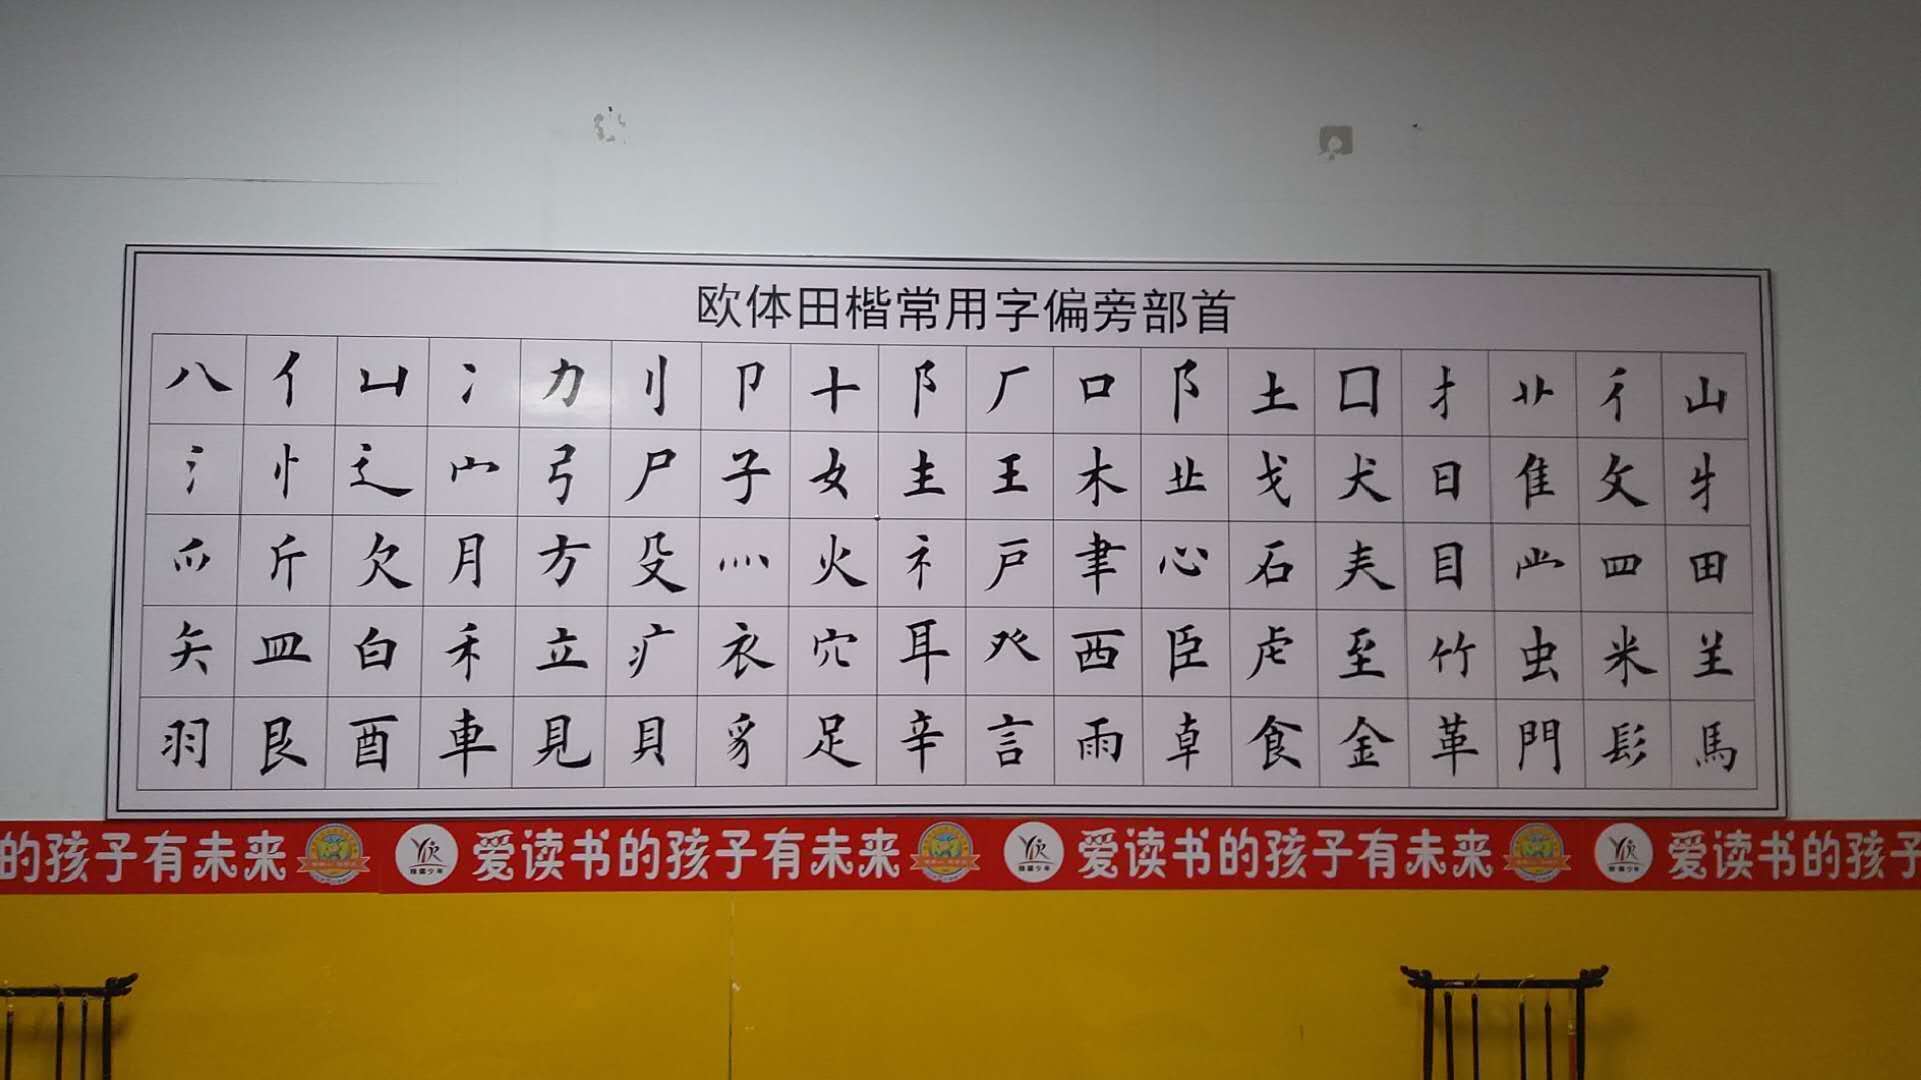 欧体田楷常用字偏旁部首
八 亻 凵 冫 力 刂 卩 十 阝 厂 口 阝 土 囗 扌 艹 彳 山
氵 忄 辶 宀 弓 尸 子 女 主 王 木 业 戈 犬 日 隹 攵 牜
爫 斤 欠 月 方 殳 灬 火 礻 戸 聿 心 石 夫 目 龸 罒 田
矢 皿 白 禾 立 疒 衣 穴 耳 癶 西 臣 虍 至 竹 虫 米 𦍌
羽 艮 酉 車 見 貝 豸 足 辛 言 雨 卓 食 金 革 門 髟 馬
的孩子有未来 爱读书的孩子有未来 爱读书的孩子有未来 爱读书的孩子